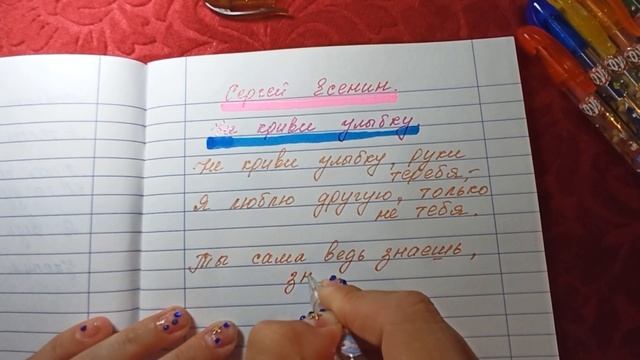 Сергей Есенин.
Не криви улыбку
Не криви улыбку, руки
теребя, –
Я люблю другую, только
не тебя.
Ты сама ведь знаешь,
зн